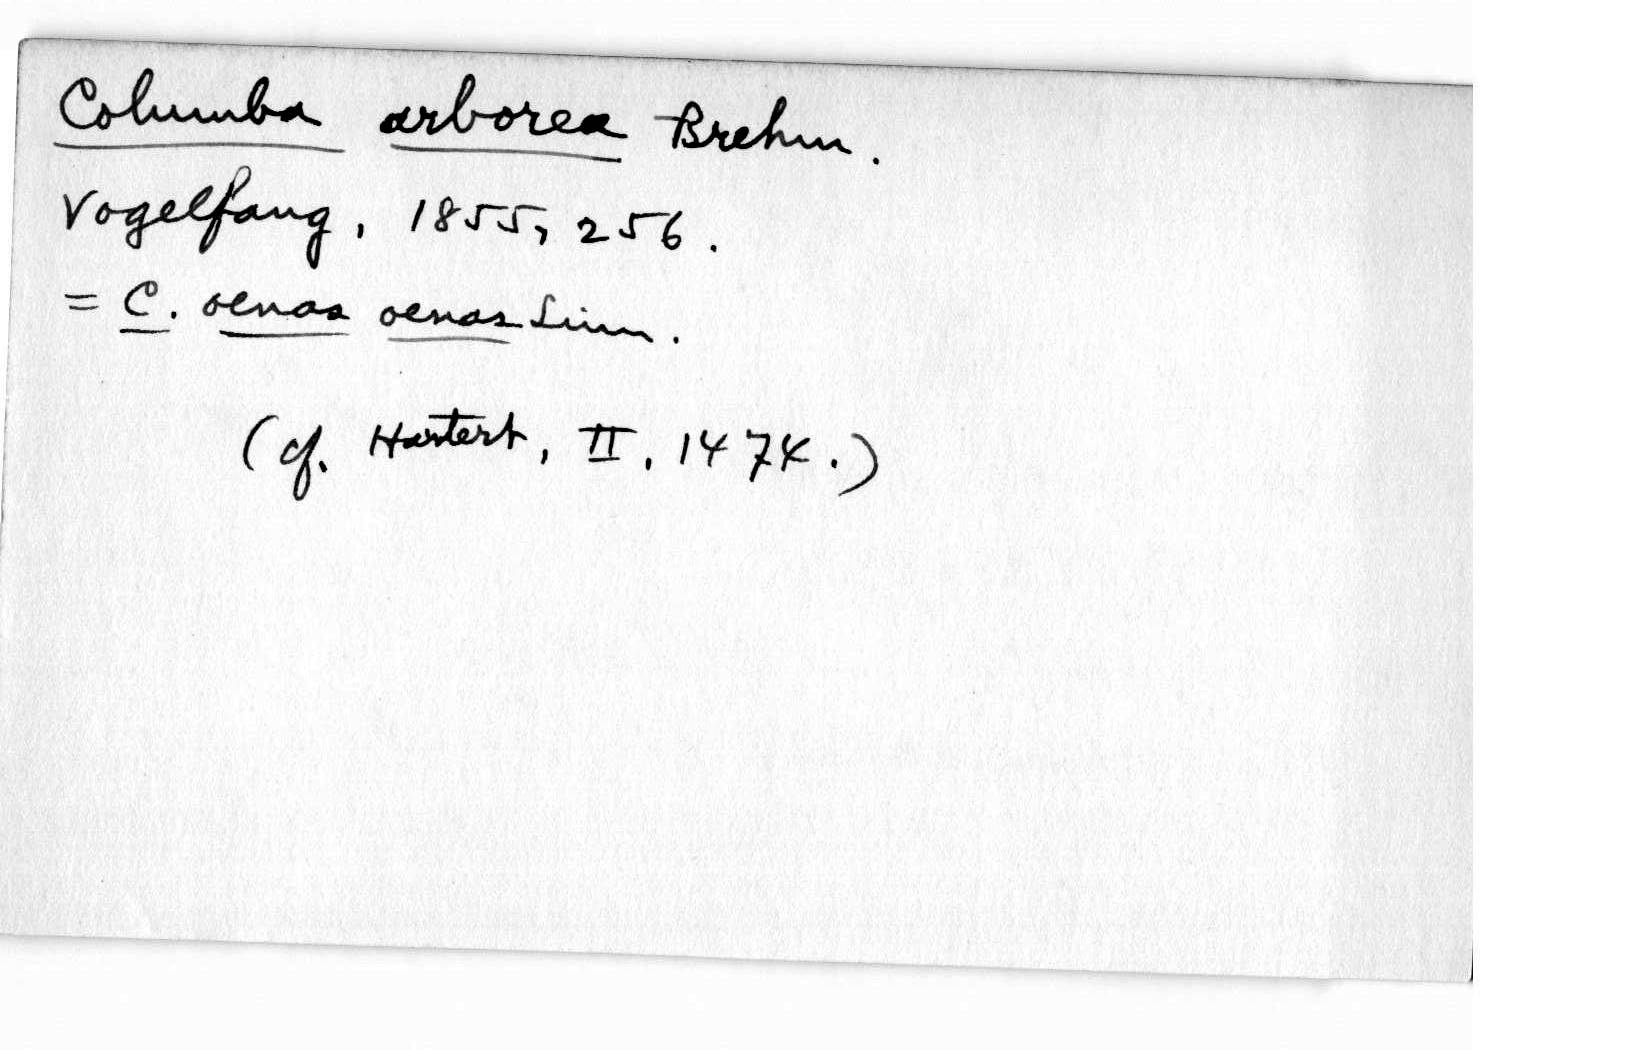 Columba arborea Brehm.
Vogelfang, 1855, 256.
= C. oenas oenas Linn.
(cf. Hartert, II, 1474.)